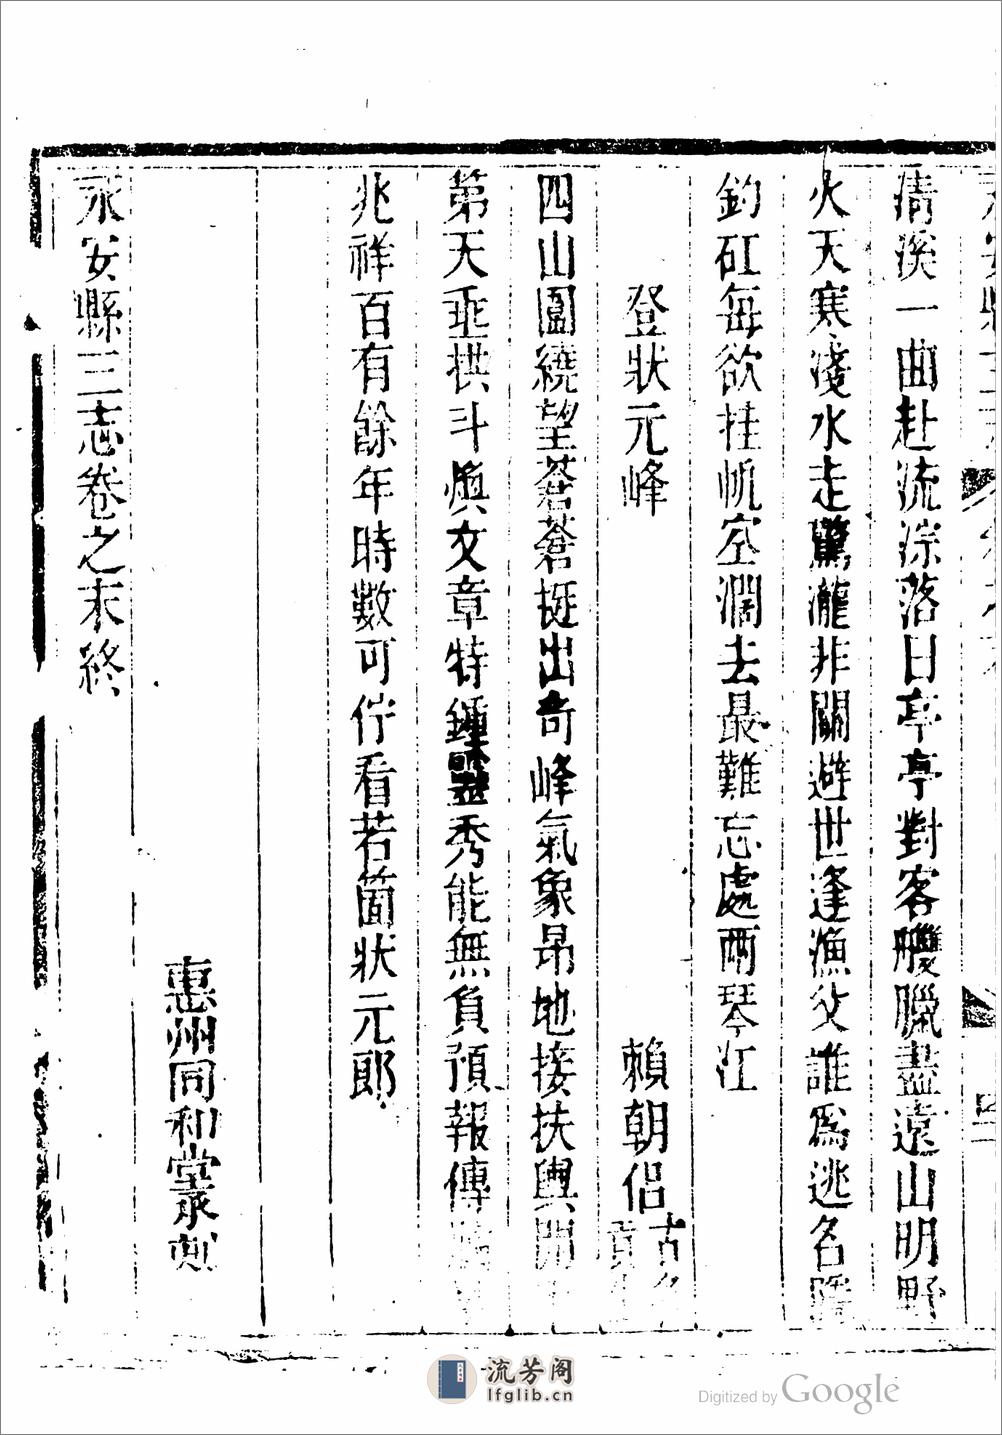 清溪一曲赴流淙落日亭亭對客艭臘盡遠山明野
火天寒淺水走驚瀧非關避世逢漁父誰爲逃名
釣矼每欲挂帆空濶去最難忘處兩琴江
登狀元峰 賴朝侶
四山圍繞望蒼蒼挺出奇峰氣象昂地接扶輿開
第天垂拱斗煥文章特鍾靈秀能無負預報傳
兆祥百有餘年時數可佇看若箇狀元郎
惠州同和堂承刻
永安縣三志卷之末終
流芳阁
lfglib.cn
Digitized by Google